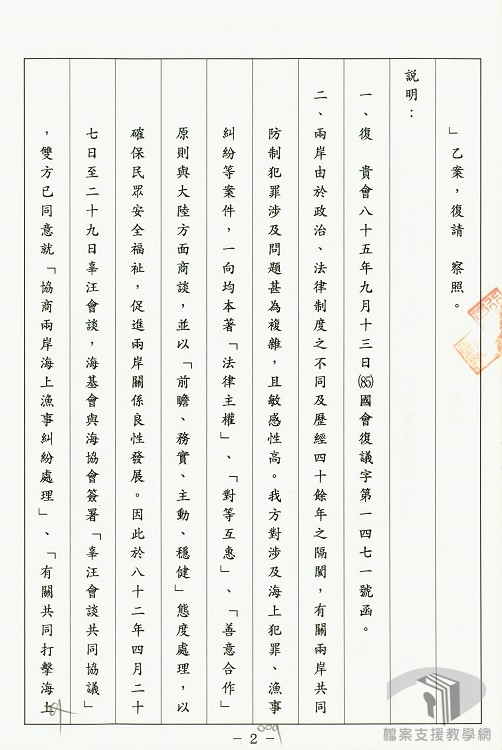 」乙案，復請　察照。
說明：
一、復　貴會八十五年九月十三日(85)國會復議字第一四七一號函。
二、兩岸由於政治、法律制度之不同及歷經四十餘年之隔閡，有關兩岸共同
防制犯罪涉及問題甚為複雜，且敏感性高。我方對涉及海上犯罪、漁事
糾紛等案件，一向均本著「法律主權」、「對等互惠」、「善意合作」
原則與大陸方面商談，並以「前瞻、務實、主動、穩健」態度處理，以
確保民眾安全福祉，促進兩岸關係良性發展。因此於八十二年四月二十
七日至二十九日辜汪會談，海基會與海協會簽署「辜汪會談共同協議」
，雙方已同意就「協商兩岸海上漁事糾紛處理」、「有關共同打擊海上
－2－
檔案支援教學網